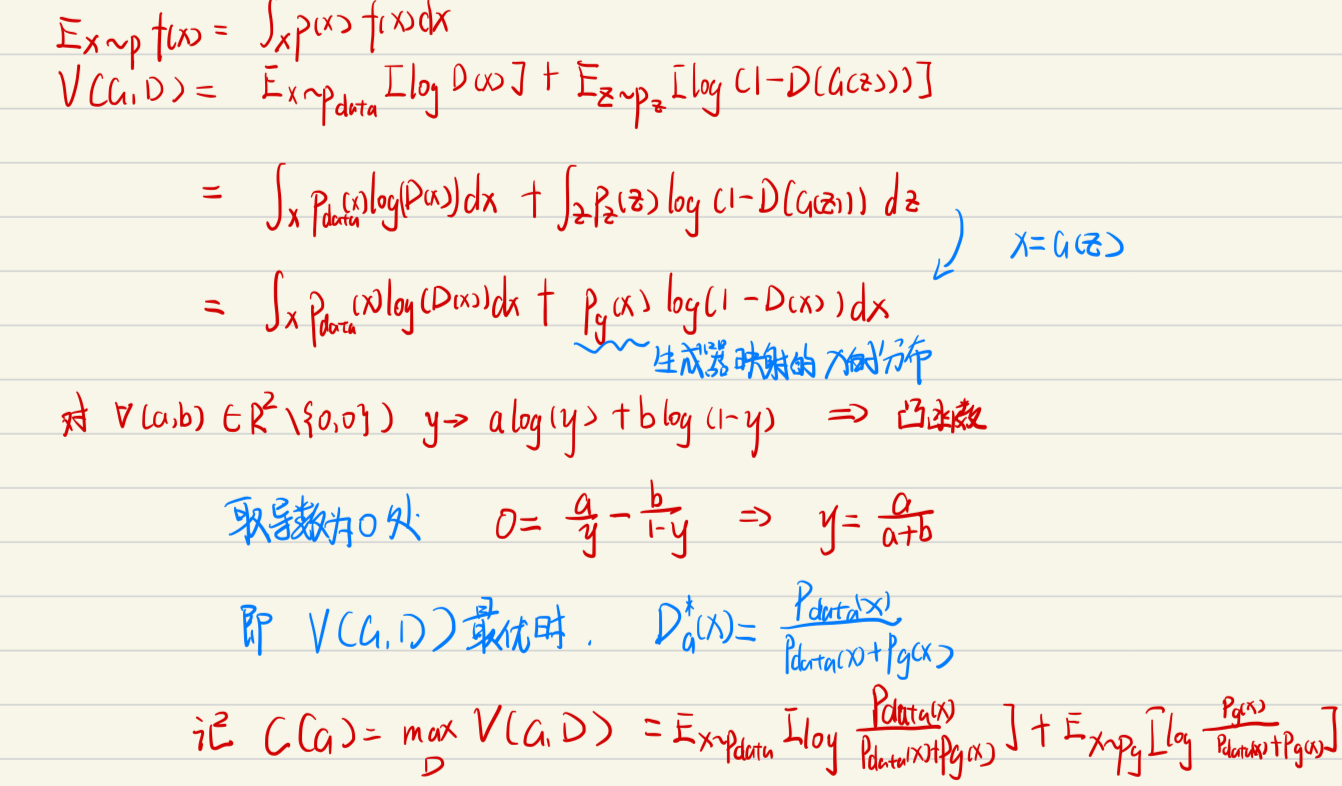 E_{x∼p} f(x) = ∫_x p(x) f(x)dx
V(G,D) = E_{x∼p_data} [log D(x)] + E_{z∼p_z} [log (1-D(G(z)))]
= ∫_x p_data(x) log(D(x))dx + ∫_z p_z(z) log (1-D(G(z))) dz
x=G(z)
= ∫_x p_data(x) log(D(x))dx + p_g(x) log(1-D(x))dx
生成器映射的 x的分布
对 ∀(a,b) ∈R²\{0,0}) y→ a log(y) + b log (1-y) ⇒ 凸函数
取导数为0处 0= a/y - b/(1-y) ⇒ y= a/(a+b)
即 V(G,D))最优时. D*_G(x)= P_data(x)/(P_data(x)+P_g(x))
记 C(G)= max_D V(G,D) = E_{x∼p_data} [log P_data(x)/(P_data(x)+P_g(x))] + E_{x∼p_g} [log P_g(x)/(P_data(x)+P_g(x))]